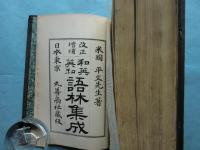 米國 平文先生著
改正增補 和英英和 語林集成
日本東京 丸善商社藏版